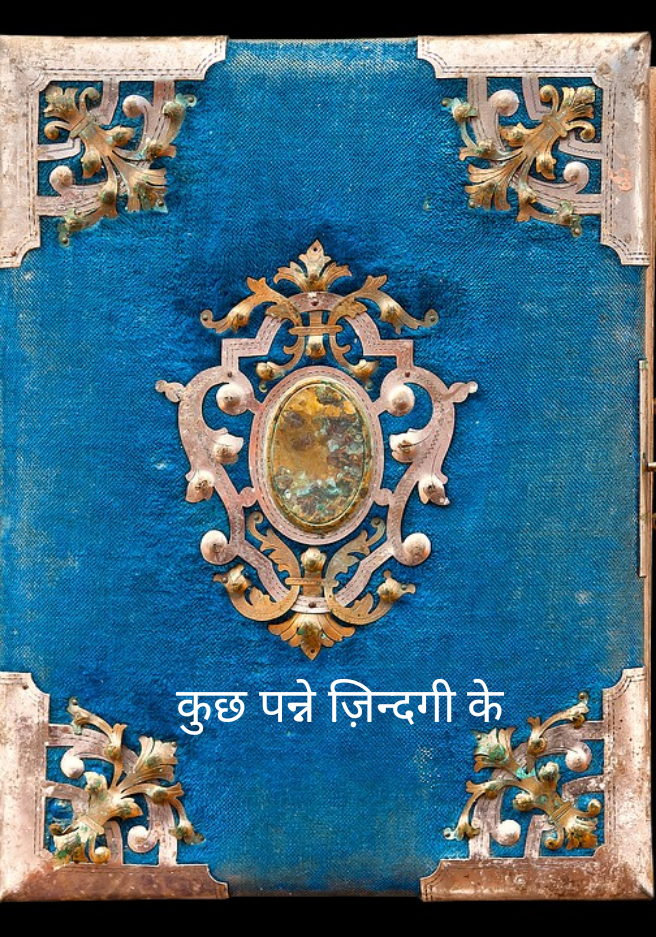 कुछ पन्ने ज़िन्दगी के